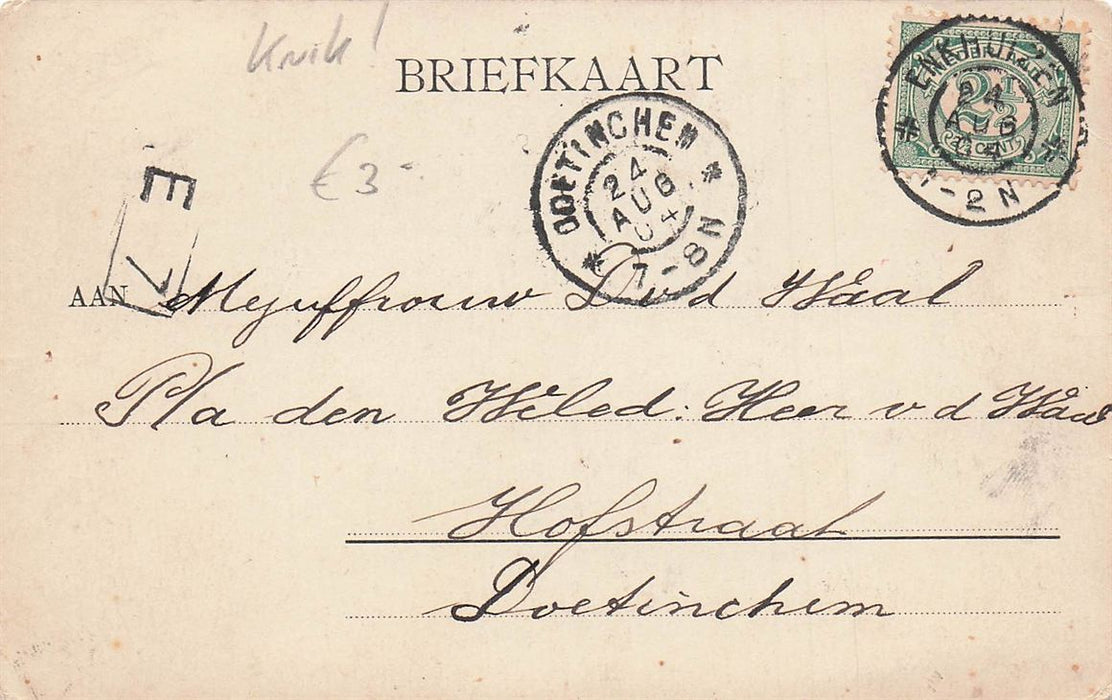 Knik!
BRIEFKAART
€ 3-
ENKHUIZEN
24
AUG
04
1-2N
2½
CENT
DOETINCHEM
24
AUG
04
7-8N
E
AAN Mejuffrouw D v d Waal
P/a den Weled: Heer v d Waal
Hofstraat
Doetinchem